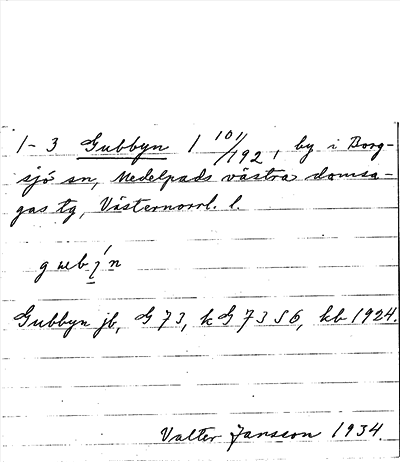 1-3 Gubbyn 1 101/192, by i Borg-
sjö sn, Medelpads västra domsa-
gas tg, Västernorrl. l.
Gubbyn jb, G 73, k G 73 S6, kb 1924.
Valter Jansson 1934.